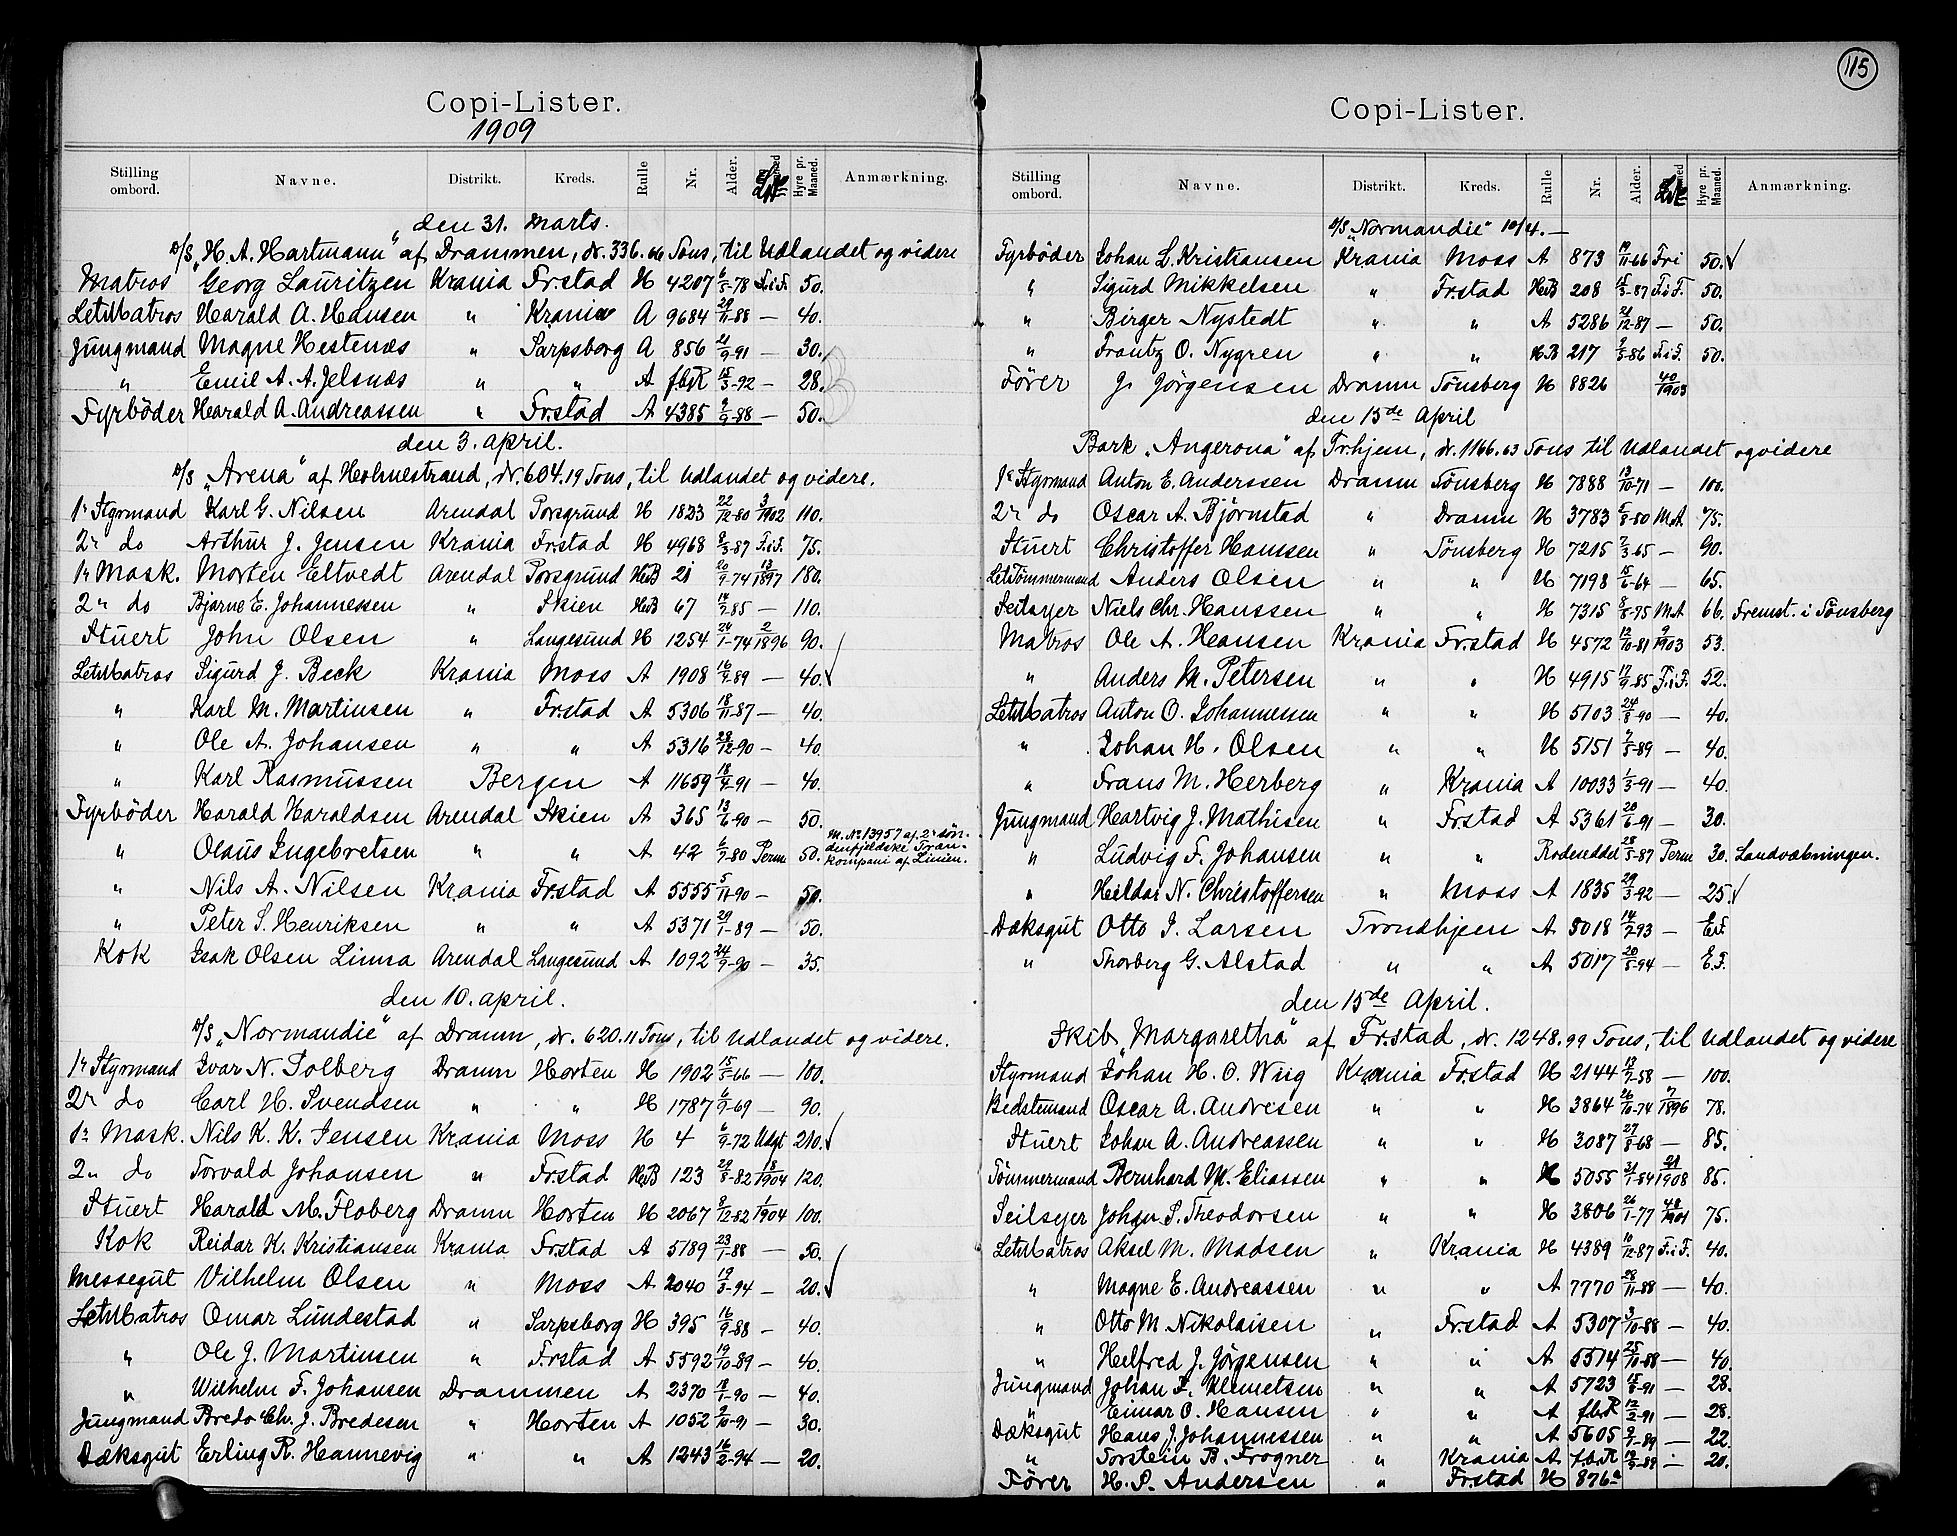 Copi-Lister.
1909
Stilling ombord. Navne. Distrikt. Kreds. Rulle Nr. Alder. Hyre pr. Maaned. Anmærkning.
den 31. Marts.
D/S „H. A. Hartmann“ af Drammen, dr. 336.66 Tons, til Udlandet og videre
Matros Georg Lauritzen Krania Fr.stad H 4207 6/5-78 F.i F. 50.
LetMatros Harald A. Hansen " Krania A 9684 29/11-88 — 40.
Jungmand Magne Hestenæs " Sarpsborg A 856 21/9-91 — 30.
" Emil A. A. Jelsnæs " " A f.b.R 15/3-92 — 28.
Fyrbøder Harald A. Andreassen " Fr.stad A 4385 9/9-88 — 50.
den 3. April.
D/S „Arena“ af Holmestrand, dr. 604.19 Tons, til Udlandet og videre.
1r Styrmand Karl G. Nilsen Arendal Porsgrund H 1823 22/12-80 3/1902 110.
2r do Arthur J. Jensen Krania Fr.stad H 4968 8/3-87 F.i F. 75.
1r Mask. Morten Eltvedt Arendal Porsgrund HB 21 20/9-74 13/1897 180.
2r do Bjarne E. Johannessen " Skien HB 67 14/7-85 — 110.
Stuert John Olsen " Langesund H 1254 24/1-74 2/1896 90.
LetMatros Sigurd J. Beck Krania Moss A 1908 16/9-89 — 40.
" Karl M. Martinsen " Fr.stad A 5306 18/11-87 — 40.
" Ole A. Johansen " " A 5316 28/12-90 — 40.
" Karl Rasmussen Bergen A 11659 18/9-91 — 40.
Fyrbøder Harald Haraldsen Arendal Skien A 365 13/6-90 — 50.
" Olaus Ingebretsen " " A 42 6/7-80 Perm 50. M. No 13957 af 2. søndenfjeldske Trænkompani af Linien.
" Nils A. Nilsen Krania Fr.stad A 5555 5/11-90 — 50.
" Peter S. Henriksen " " A 5371 29/1-89 — 50.
Kok Isak Olsen Limsa Arendal Langesund A 1092 24/9-90 — 35.
den 10. April.
D/S „Normandie“ af Dramn, dr. 620.11 Tons, til Udlandet og videre.
1r Styrmand Ivar N. Solberg Dramn Horten H 1902 15/5-66 — 100.
2r do Carl H. Svendsen " " H 1787 6/9-69 — 90.
1r Mask. Nils K. K. Jensen Krania Moss H 4 6/9-72 Udgt 210.
2r do Torvald Johansen " Fr.stad HB 123 29/8-82 8/1904 120.
Stuert Harald M. Floberg Dramn Horten H 2067 8/12-82 1/1904 100.
Kok Reidar K. Kristiansen Krania Fr.stad A 5189 23/1-88 — 50.
Messegut Vilhelm Olsen " Moss A 2040 19/3-94 — 20.
LetMatros Omar Lundestad " Sarpsborg H 395 16/9-88 — 40.
" Ole J. Martinsen " Fr.stad A 5592 19/10-89 — 40.
" Wilhelm F. Johansen Drammen A 2370 18/1-90 — 40.
Jungmand Bredo Chr. J. Bredesen " Horten A 1052 9/10-91 — 30.
Dæksgut Erling R. Hannevig " " A 1243 16/2-94 — 20.
115
Copi-Lister.
Stilling ombord. Navne. Distrikt. Kreds. Rulle Nr. Alder. Hyre pr. Maaned. Anmærkning.
D/S „Normandie“ 10/4. —
Fyrbøder Johan L. Kristiansen Krania Moss A 873 19/11-66 Fri 50.
" Sigurd Mikkelsen " Fr.stad HB 208 15/3-87 F.i F. 50.
" Birger Nystedt " " A 5286 24/12-87 — 50.
" Frantz O. Nygren " " HB 217 9/5-86 F.i F. 50.
Fører J. Jørgensen Dramn Tønsberg H 8826 40/1903
den 15de April
Bark „Angerona“ af Tr.hjem, dr. 1166.63 Tons til Udlandet og videre
1r Styrmand Anton E. Anderssen Dramn Tønsberg H 7888 13/10-71 — 100.
2r do Oscar A. Bjørnstad " Dramn H 3783 5/8-80 M.A 75.
Stuert Christoffer Hanssen " Tønsberg H 7215 7/3-65 — 90.
LetTømmermand Anders Olsen " " H 7198 15/6-64 — 65.
Seilayer Niels Chr. Hanssen " " H 7315 8/8-75 M.A 66. Fremst. i Tønsberg
Matros Ole A. Hansen Krania Fr.stad H 4572 12/10-81 9/1903 53.
" Anders M. Petersen " " H 4915 17/9-85 F.i F. 52.
LetMatros Anton O. Johannessen " " H 5103 24/8-90 — 40.
" Johan H. Olsen " " H 5151 7/5-89 — 40.
" Frans M. Herberg " Krania A 10033 1/3-91 — 40.
Jungmand Hartvig J. Mathisen " Fr.stad A 5361 20/6-91 — 30.
" Ludvig F. Johansen " " Rodeseddel 28/5-87 Perm 30. Landvæbningen.
" Heildar N. Christoffersen " Moss A 1835 29/3-92 — 25.
Dæksgut Otto J. Larsen Trondhjem A 5018 14/7-93 — E.F.
" Thorberg G. Alstad " " A 5017 20/5-94 — E.F.
den 15de April.
Skib „Margaretha“ af Fr.stad, dr. 1248.99 Tons, til Udlandet og videre
Styrmand Johan H. O. Wiig Krania Fr.stad H 2144 13/7-58 — 100.
Bedstemand Oscar A. Andresen " " H 3864 26/10-74 7/1896 78.
Stuert Johan A. Andreassen " " H 3087 27/8-68 — 85.
Tømmermand Bernhard M. Eliassen " " H 5055 31/1-84 21/1908 85.
Seilsyer Johan S. Theodorsen " " H 3806 26/1-77 48/1901 75.
LetMatros Aksel M. Madsen " Krania H 4389 10/12-87 F.i F. 40.
" Magne E. Andreassen " " A 7770 28/11-88 — 40.
" Otto M. Nikolaisen " Fr.stad A 5307 3/10-88 — 40.
" Helfred J. Jørgensen " " A 5514 25/10-88 — 40.
Jungmand Johan F. Klemetsen " " A 5723 15/8-91 — 28.
" Einar O. Hansen " " A f.b.R 12/2-91 — 28.
Dæksgut Hans J. Johannessen " " A 5605 9/7-89 — 22.
" Torstein B. Frogner " Krania A f.b.R 19/9-89 — 20.
Fører H. P. Andersen " Fr.stad H 876a